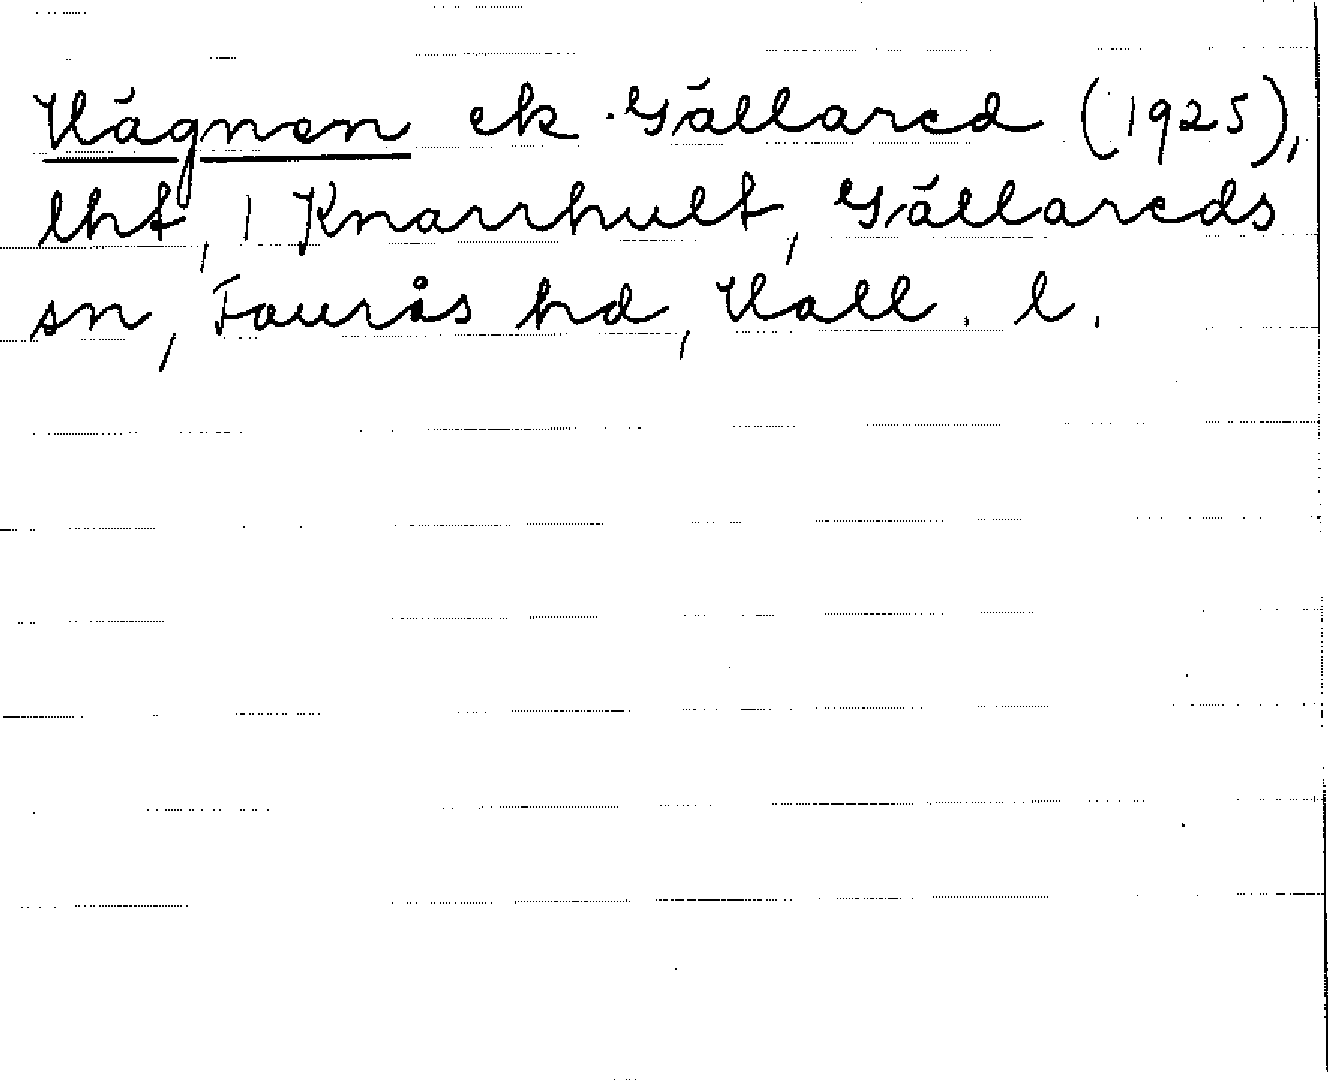 Hägnan ek Gällared (1925),
lht, 1 Knarrhult, Gällareds
sn, Faurås hd, Hall. l.